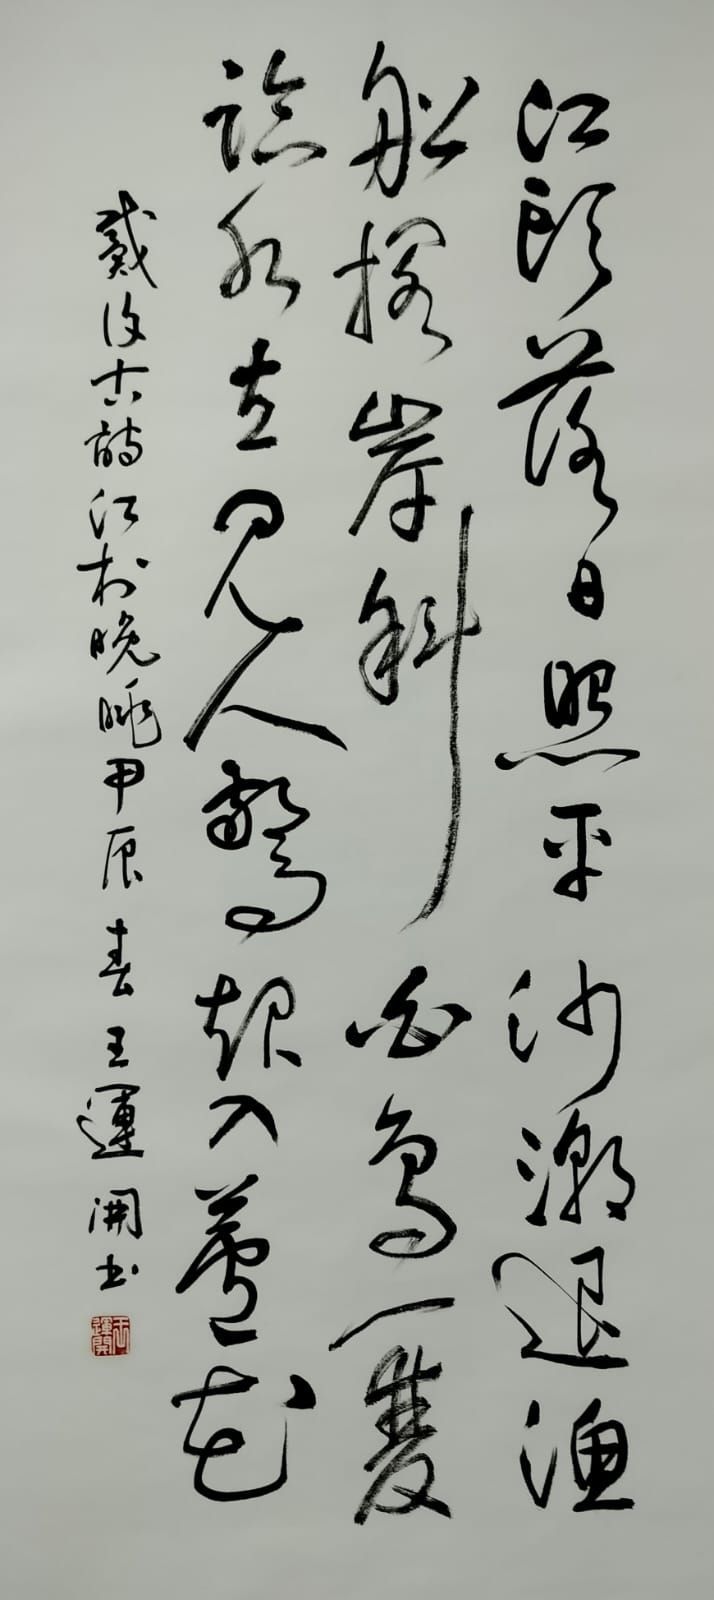 江頭落日照平沙潮退漁
船擱岸斜白鳥一雙
臨水立見人驚起入蘆花
戴復古詩江村晚眺甲辰春王運開書
王運開